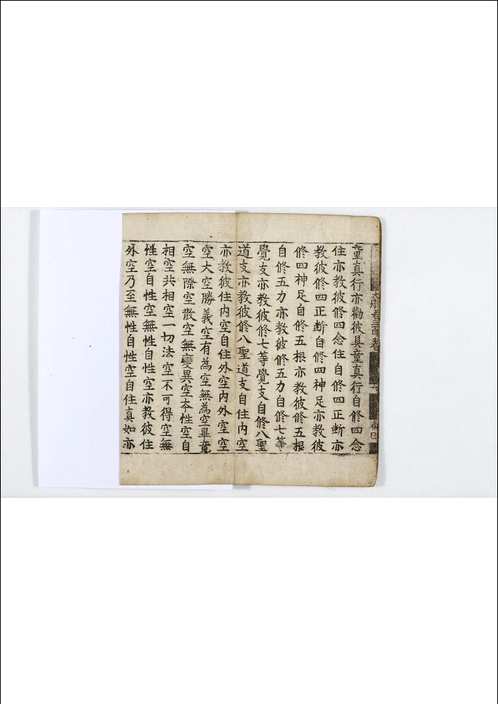 童真行亦勸彼具童真行自修四念
住亦教彼修四念住自修四正斷亦
教彼修四正斷自修四神足亦教彼
修四神足自修五根亦教彼修五根
自修五力亦教彼修五力自修七等
覺支亦教彼修七等覺支自修八聖
道支亦教彼修八聖道支自住內空
亦教彼住內空自住外空內外空空
空大空勝義空有為空無為空畢竟
空無際空散空無變異空本性空自
相空共相空一切法空不可得空無
性空自性空無性自性空亦教彼住
外空乃至無性自性空自住真如亦